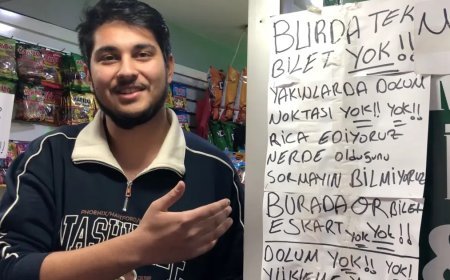 BURDA TEK
BİLET YOK!!
YAKINLARDA DOLUM
NOKTASI YOK!! YOK!!
RİCA EDİYORUZ
NERDE OLDUĞUNU
SORMAYIN BİLMİYORUZ
BURADA OR BİLET
ESKART YOK YOK!!
DOLUM YOK!!
PHOENIX/HARTFORD
NASHVILLE